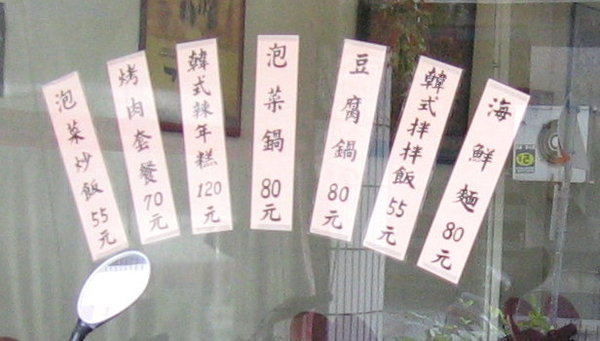 泡菜炒飯55元
烤肉套餐70元
韓式辣年糕120元
泡菜鍋80元
豆腐鍋80元
韓式拌拌飯55元
海鮮麵80元